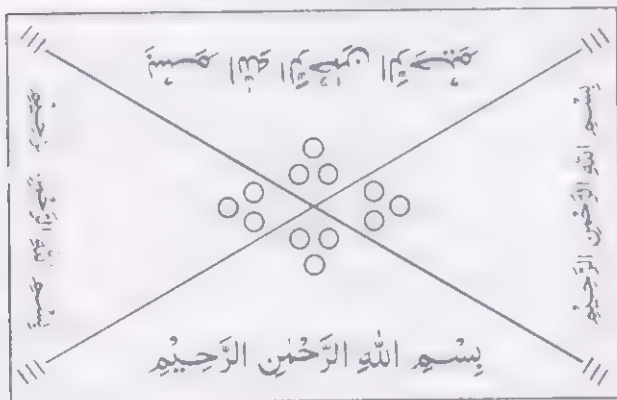 بِسْمِ اللهِ الرَّحْمٰنِ الرَّحِيْمِ
بِسْمِ اللهِ الرَّحْمٰنِ الرَّحِيْمِ
بِسْمِ اللهِ الرَّحْمٰنِ الرَّحِيْمِ
بِسْمِ اللهِ الرَّحْمٰنِ الرَّحِيْمِ